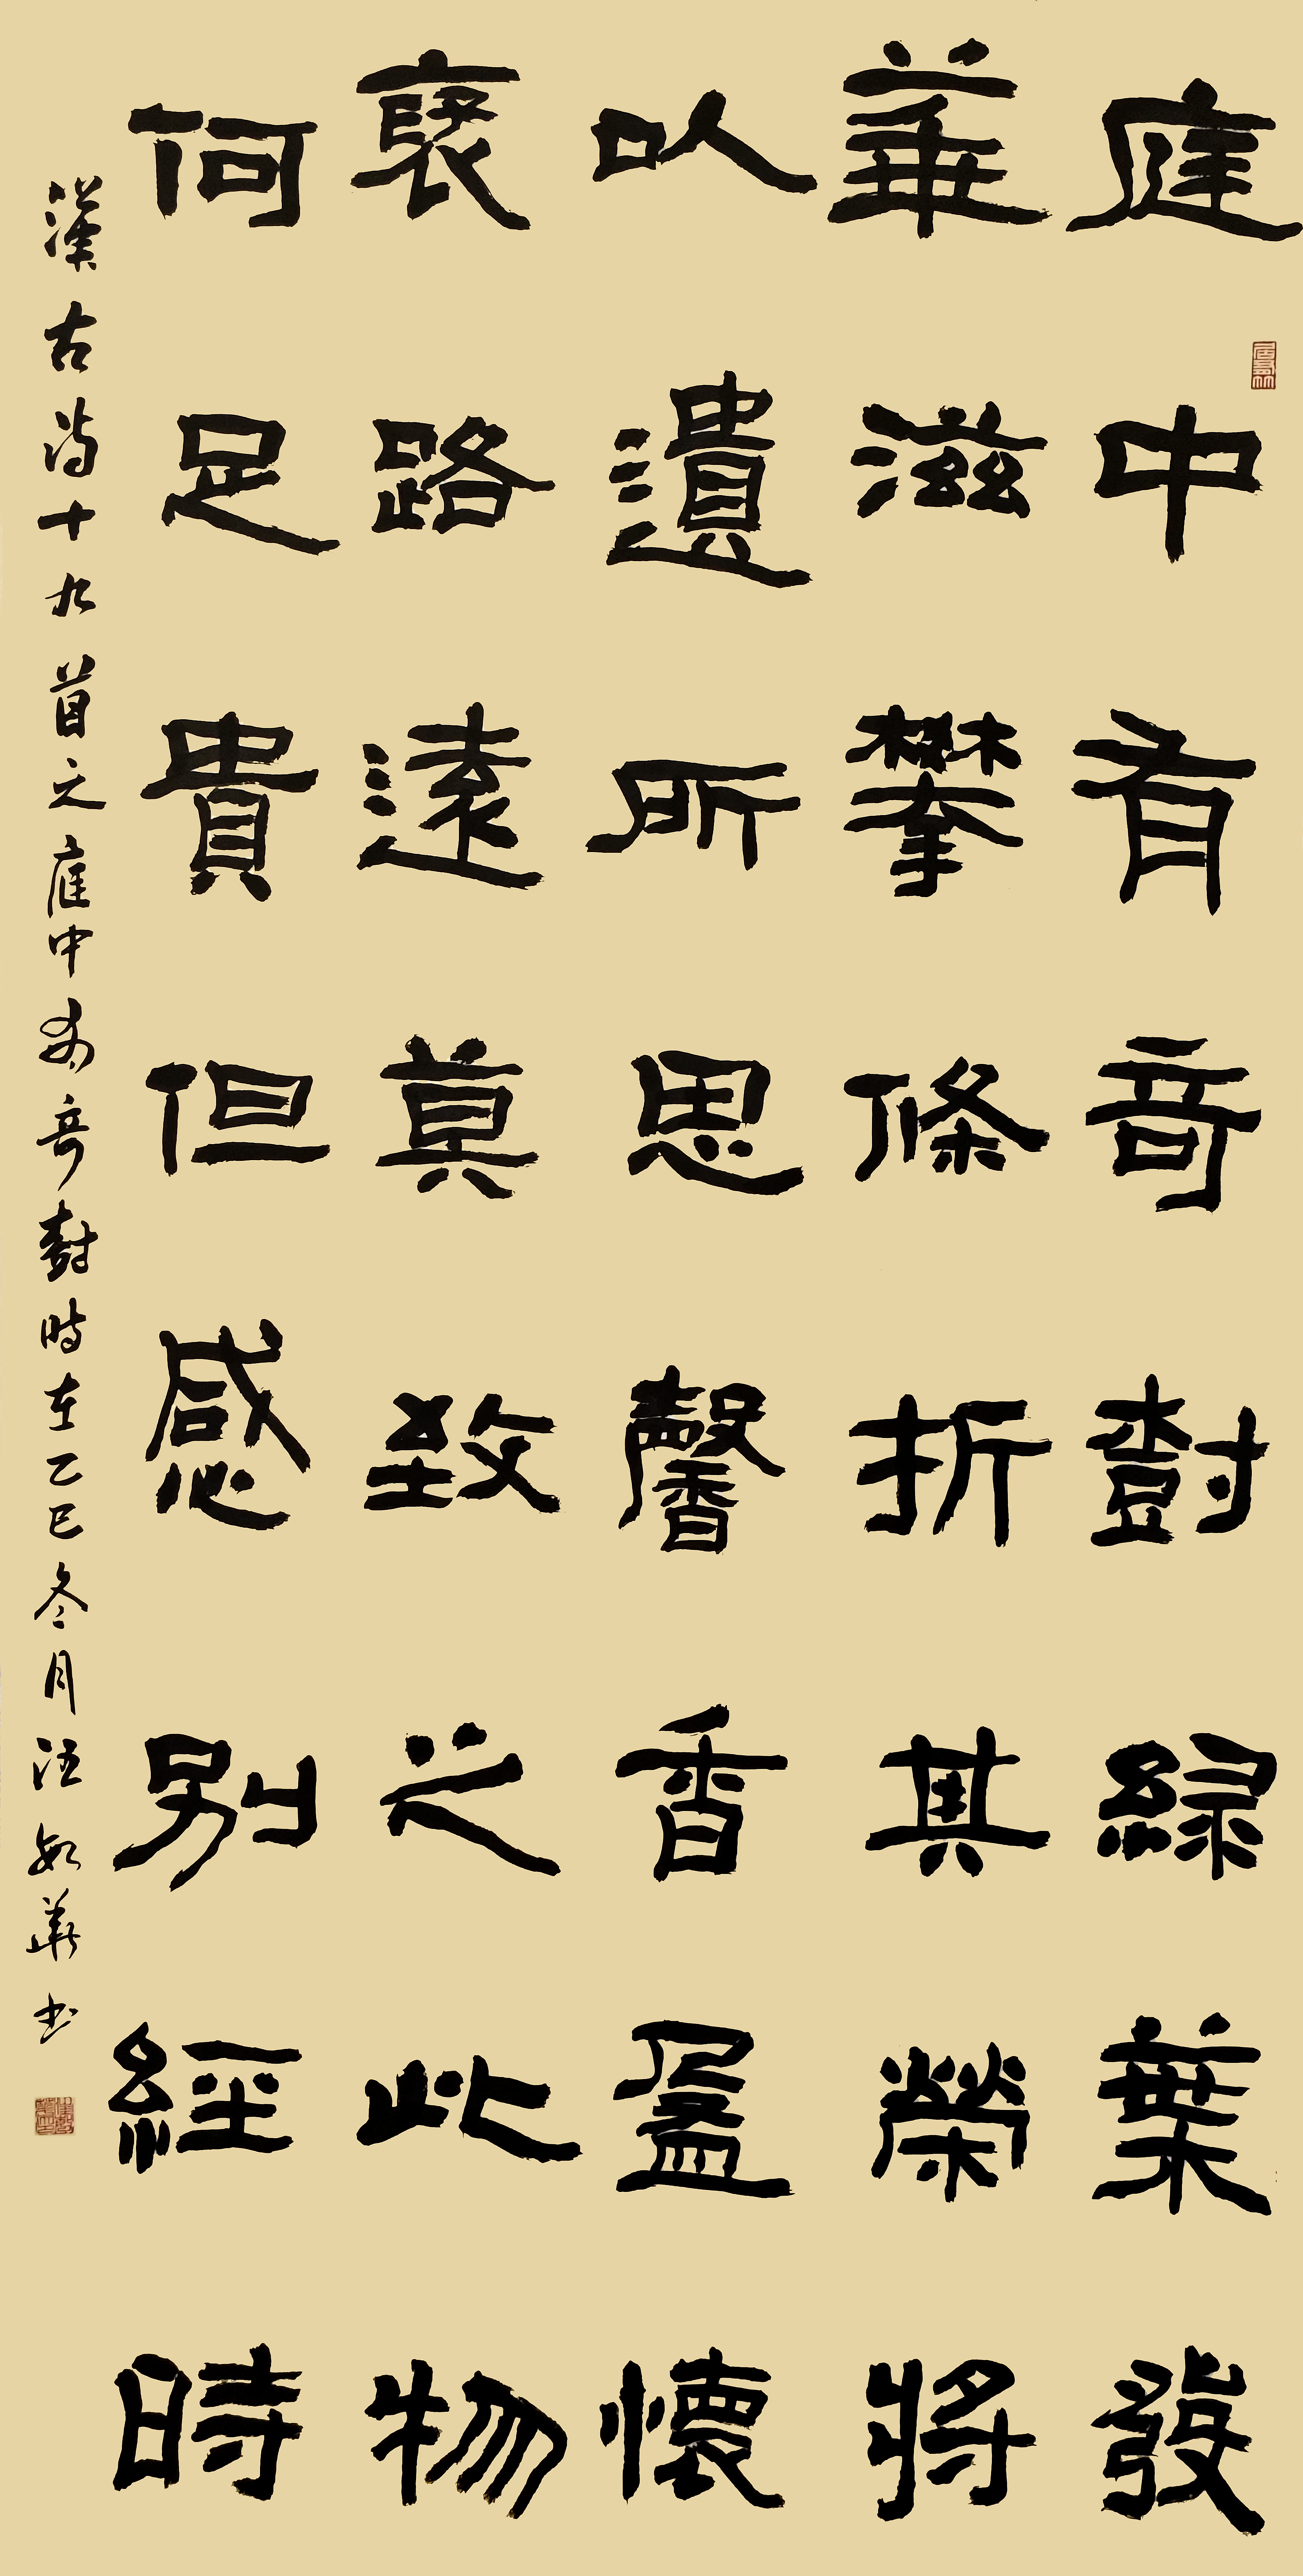 庭中有奇樹綠葉發
華滋攀條折其榮將
以遺所思馨香盈懷
褎路遠莫致之此物
何足貴但感別經時
漢古詩十九首之庭中有奇樹時在乙巳冬月汪如華書